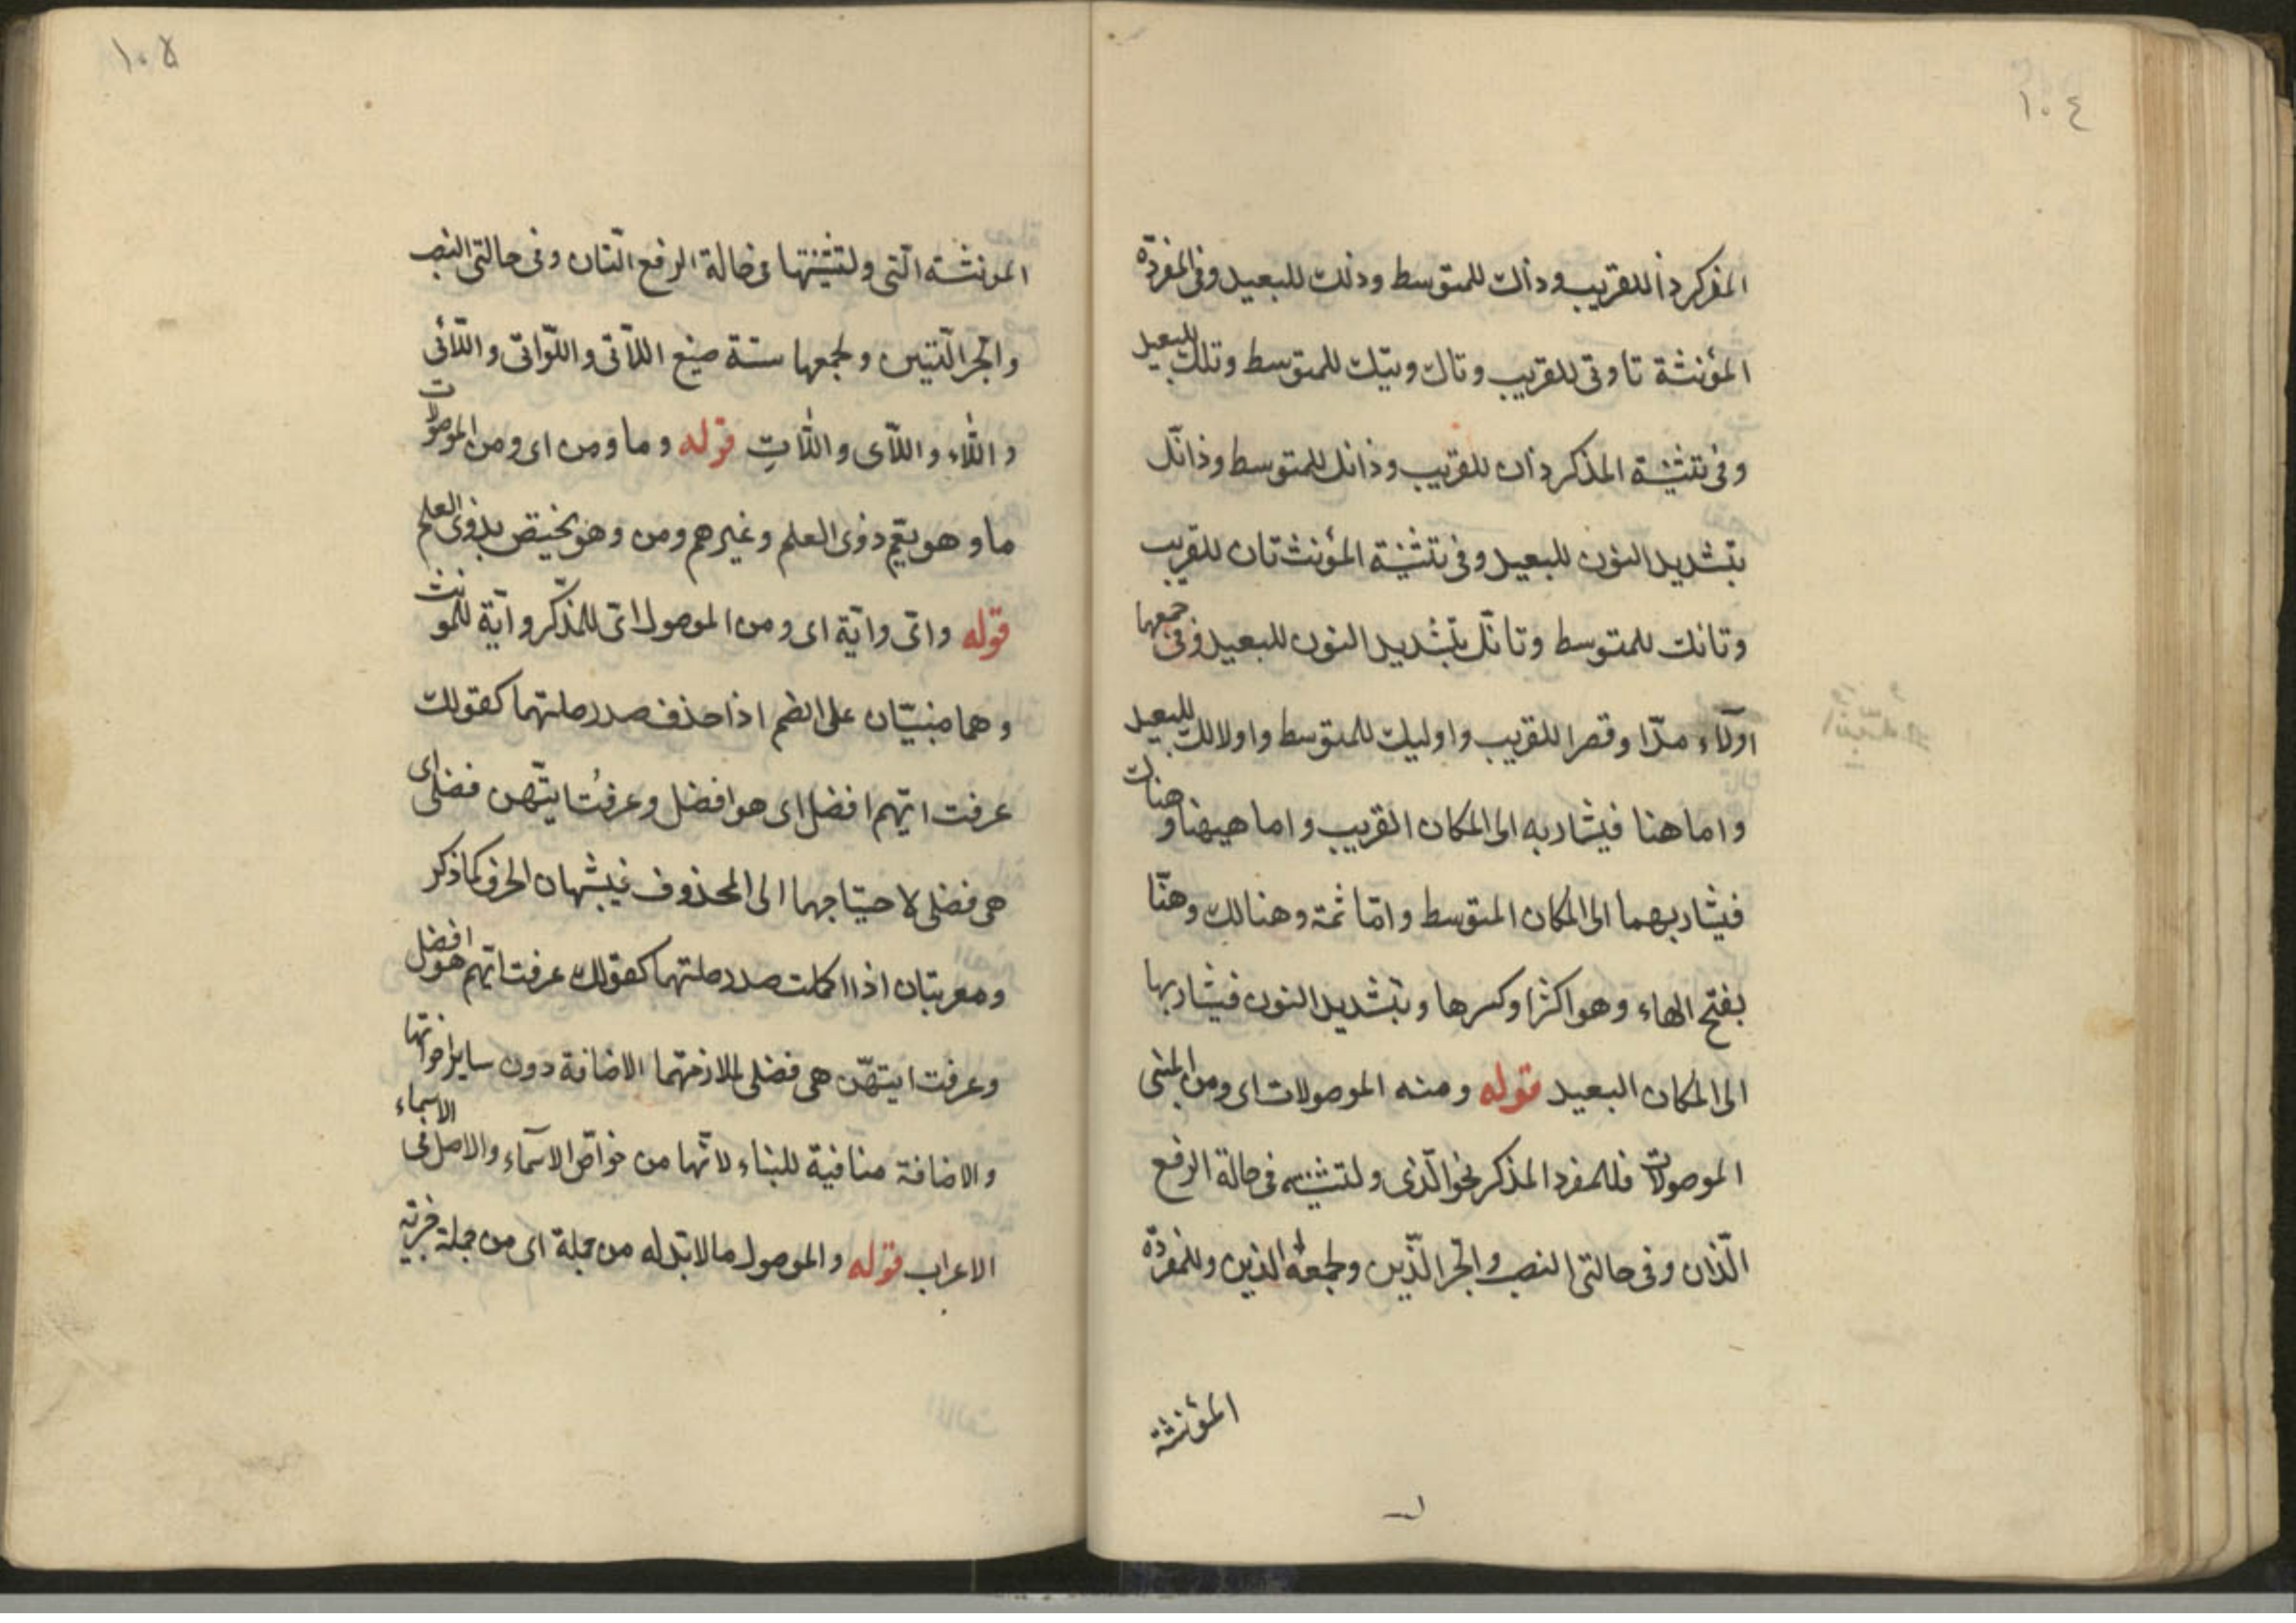 ١٠٤
المذكر ذا للقريب وذاك للمتوسط وذلك للبعيد وفى المفردة
المؤنثة تا وتى للقريب وتاك وتيك للمتوسط وتلك للبعيد
وفى تثنية المذكر ذان للقريب وذانك للمتوسط وذانّك
بتشديد النون للبعيد وفى تثنية المؤنث تان للقريب
وتانك للمتوسط وتانّك بتشديد النون للبعيد وفى جمعهما
اولآء مدّا وقصرا للقريب واوليك للمتوسط واولالك للبعيد
واما هنا فيشار به الى المكان القريب واما هيهنا وهناك
فيشار بهما الى المكان المتوسط وامّا ثمة وهنالك وهنّا
بفتح الهاء وهو اكثر وكسرها وبتشديد النون فيشار بها
الى المكان البعيد قوله ومنه الموصولات اى ومن المبنى
الموصولات فللمفرد المذكر نحو الّذى ولتثنيته فى حالة الرفع
الّذان وفى حالتى النصب والجر الّذين ولجمعه الذين وللمفردة
المؤنثة
١٠٥
المؤنثة الّتى ولتثنيتها فى حالة الرفع الّتان وفى حالتى النصب
والجر الّتين ولجمعها ستة صيغ اللآتى واللّواتى واللّائى
واللّاء واللّاى واللّاتِ قوله وما ومن اى ومن الموصولات
ما وهو يعّم ذوى العلم وغيرهم ومن وهو يختص بذوى العلم
قوله واىّ وايّة اى ومن الموصول اىّ للمذكّر وايّة للمؤنث
وهما مبنيّان على الضم اذا حذف صدر صلتهما كقولك
عرفت ايّهم افضل اى هو افضل وعرفتُ ايتّهن فضلى اى
هى فضلى لاحتياجهما الى المحذوف فيشبهان الحرف كما ذكر
ومعربتان اذا اكملت صدر صلتهما كقولك عرفت ايّهم هو افضل
وعرفت ايتهّن هى فضلى لملازمتهما الاضافة دون ساير اخواتها
والاضافة منافية للبناء لانّها من خواّص الاسماء والاصل فى الاسماء
الاعراب قوله والموصول ما لابّد له من جملة اى من جملة خبرية